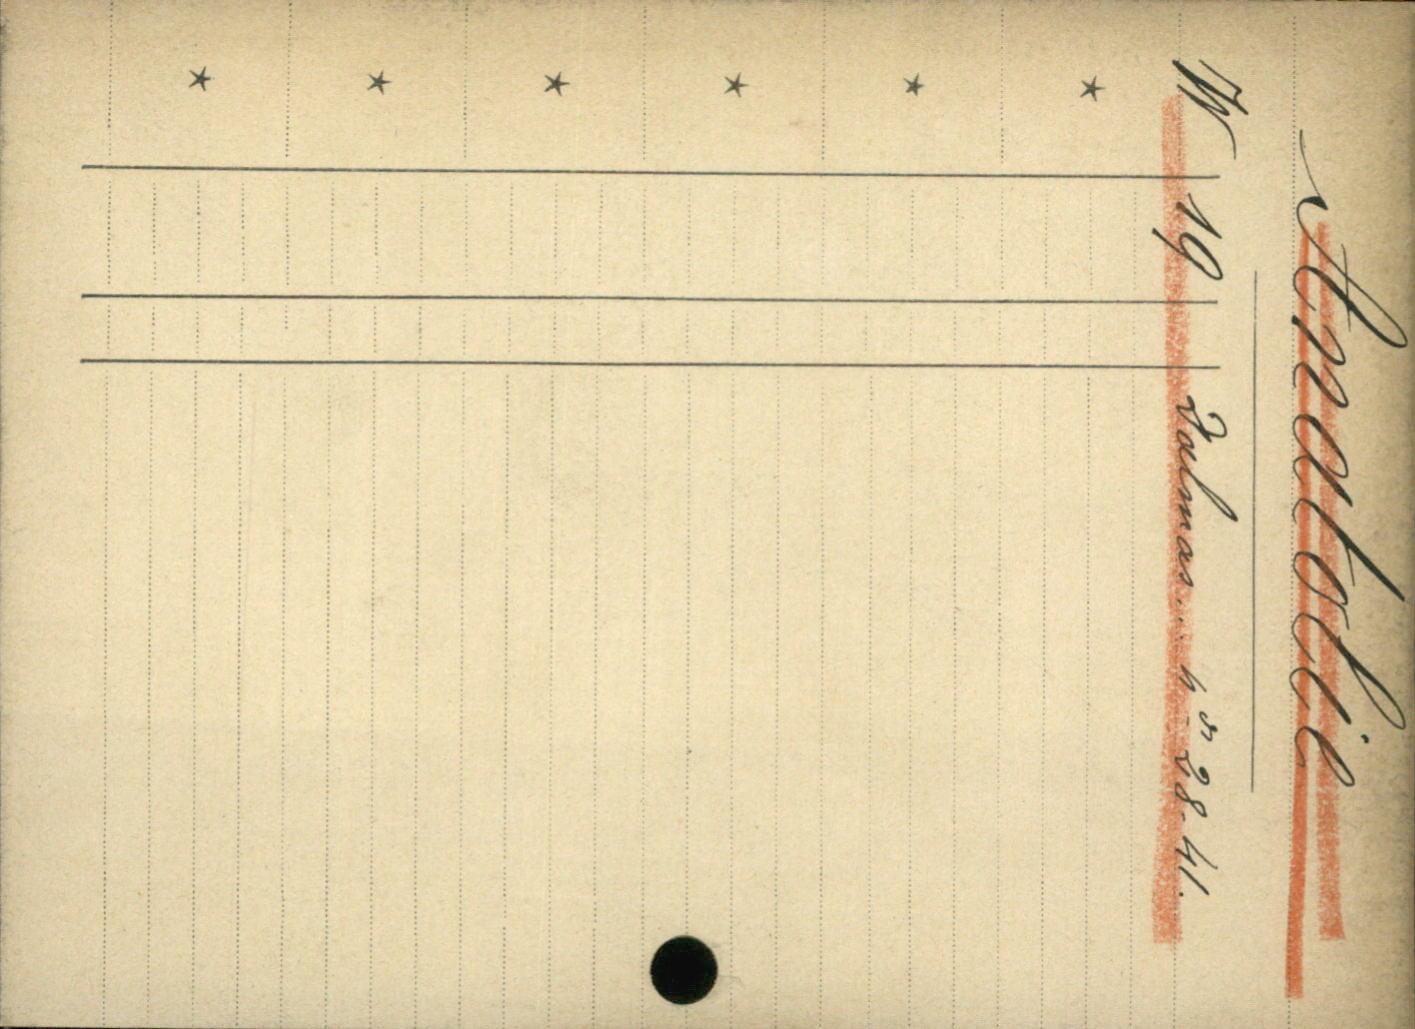 Anatolie
W 19 Dalmas... nos 28-41.